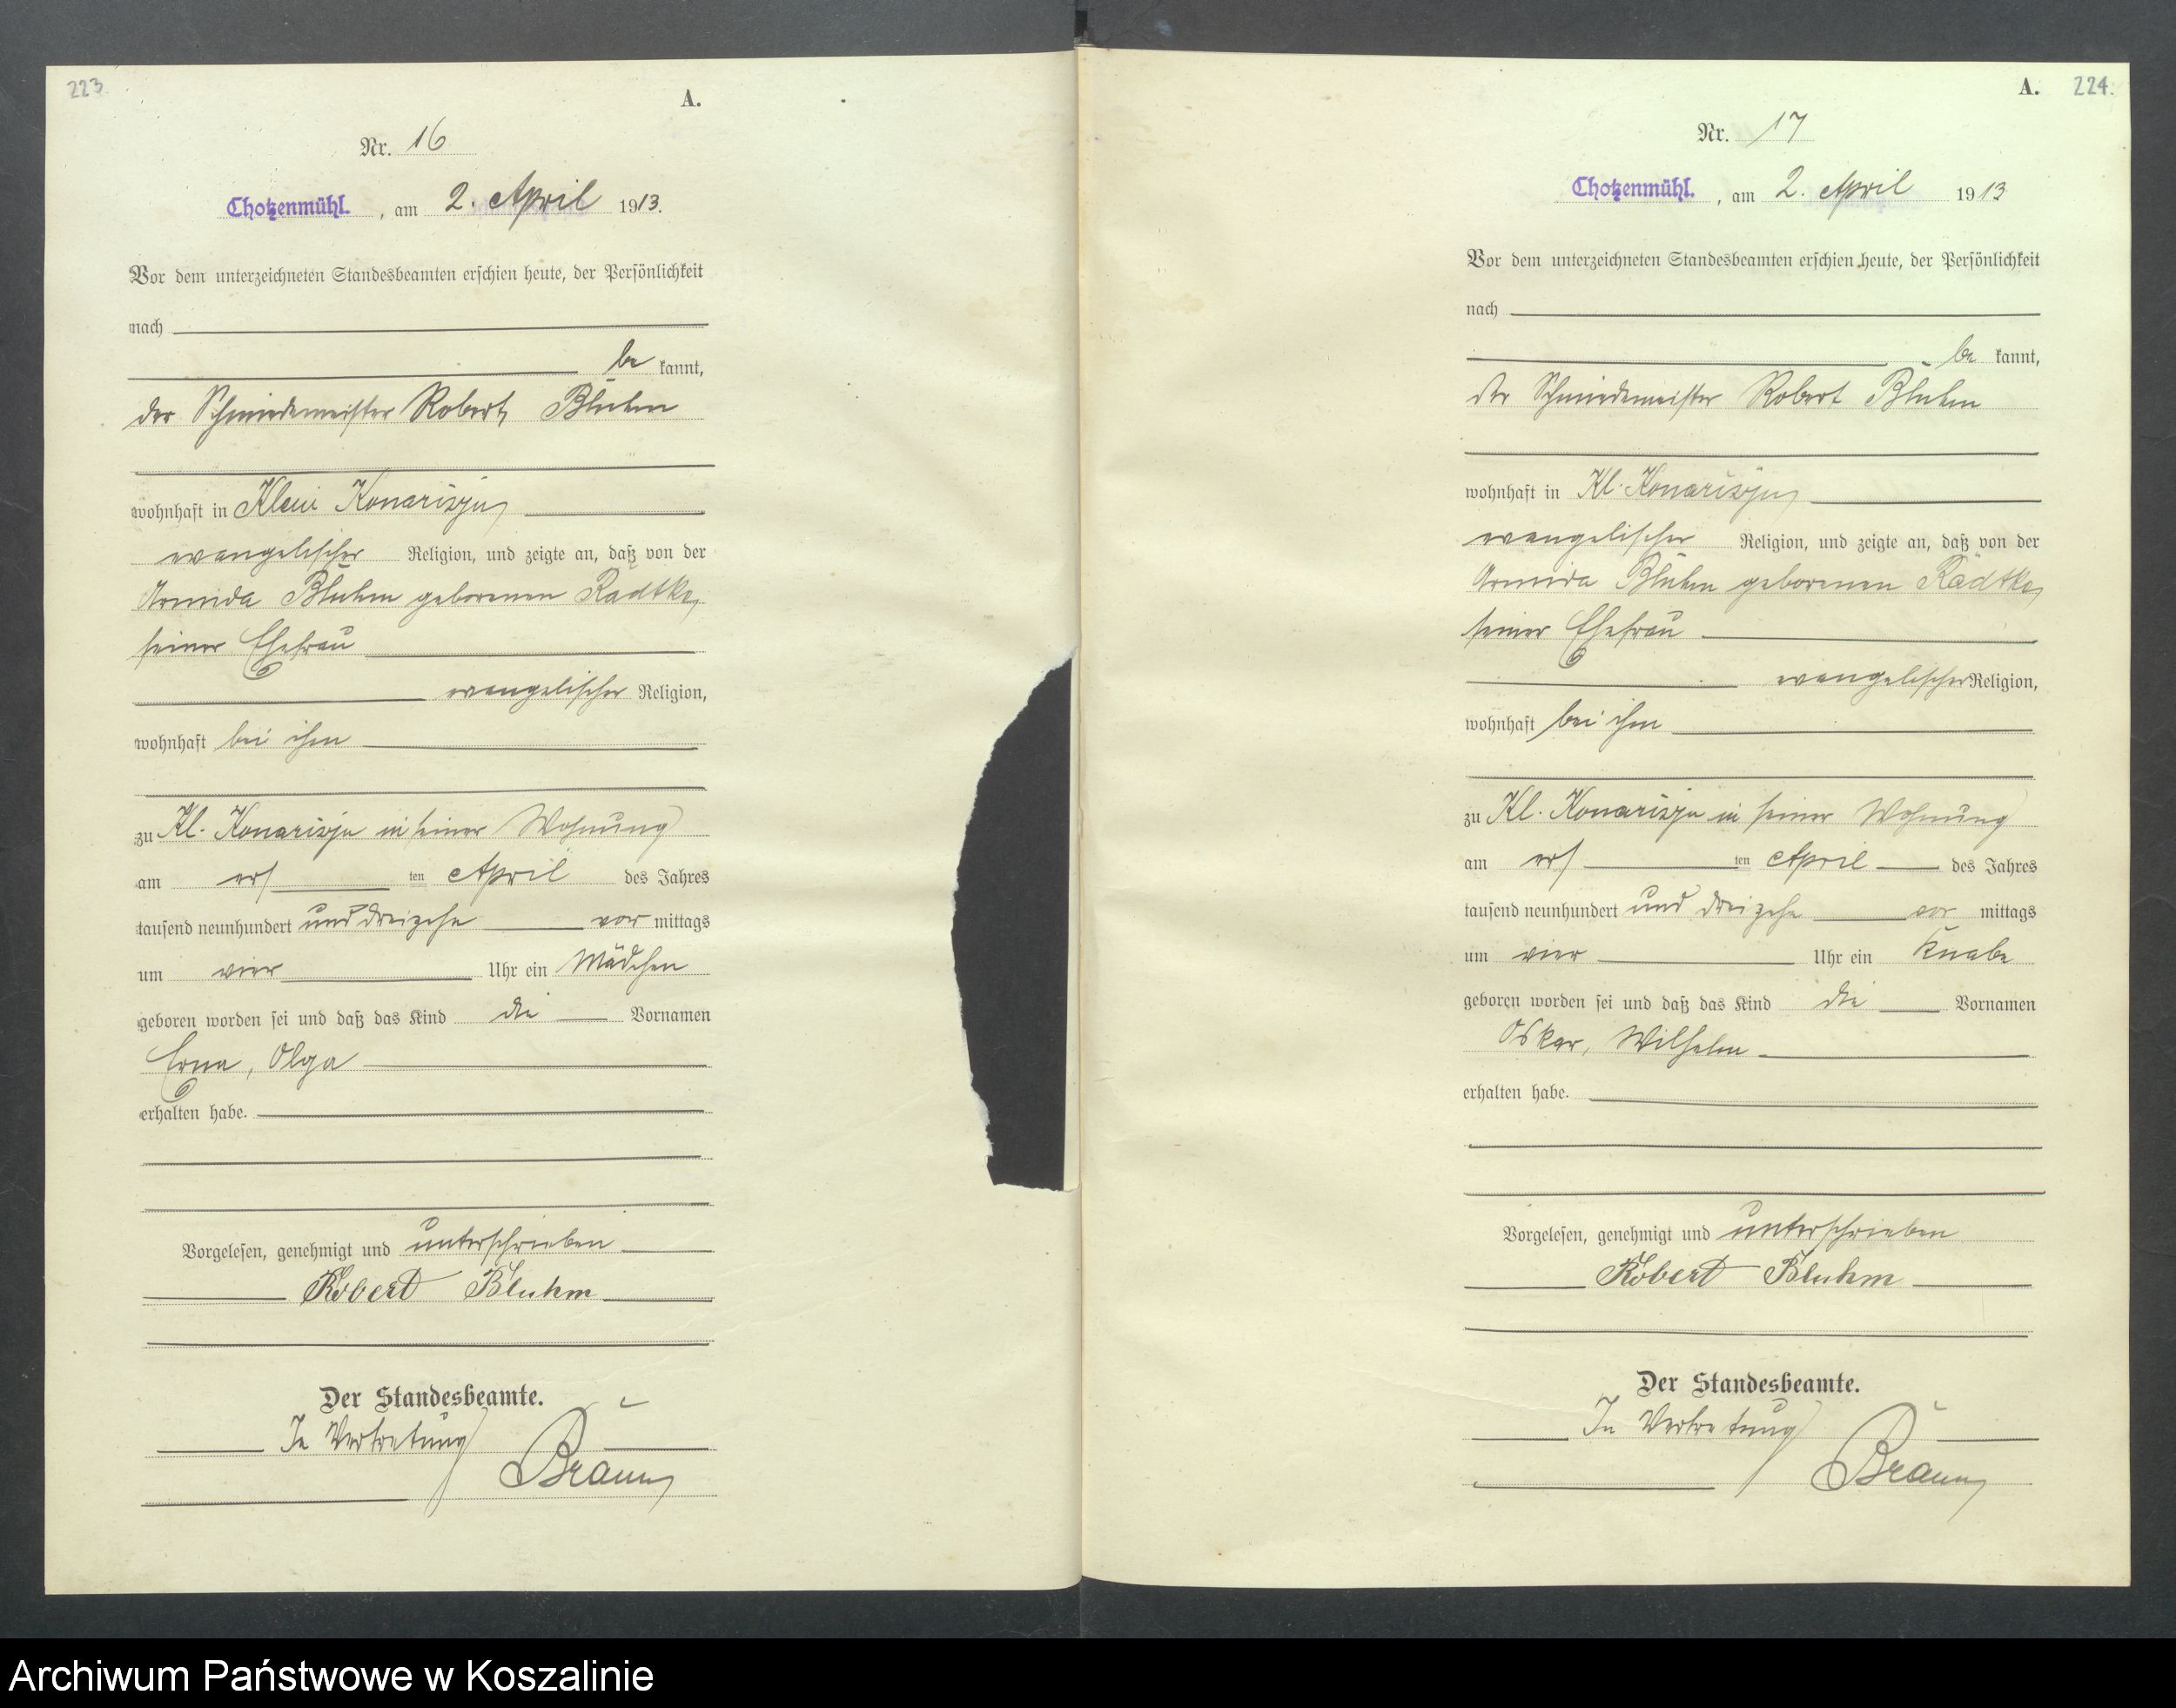 223
A.
Nr. 16
Chotzenmühl. , am 2. April 1913.
Vor dem unterzeichneten Standesbeamten erschien heute, der Persönlichkeit
nach
be kannt,
der Schmiedemeister Robert Bluhm
wohnhaft in Klein Konarizyn
evangelischer Religion, und zeigte an, daß von der
Armida Bluhm geborenen Radtke,
seiner Ehefrau
evangelischer Religion,
wohnhaft bei ihm
zu Kl. Konarizyn in seiner Wohnung
am ers ten April des Jahres
tausend neunhundert und dreizehn vor mittags
um vier Uhr ein Mädchen
geboren worden sei und daß das Kind die Vornamen
Erna, Olga
erhalten habe.
Vorgelesen, genehmigt und unterschrieben
Robert Bluhm
Der Standesbeamte.
In Vertretung
Braun
A. 224.
Nr. 17
Chotzenmühl. , am 2. April 1913
Vor dem unterzeichneten Standesbeamten erschien heute, der Persönlichkeit
nach
be kannt,
der Schmiedemeister Robert Bluhm
wohnhaft in Kl. Konarizyn
evangelischer Religion, und zeigte an, daß von der
Armida Bluhm geborenen Radtke,
seiner Ehefrau
evangelischer Religion,
wohnhaft bei ihm
zu Kl. Konarizyn in seiner Wohnung
am ers ten April des Jahres
tausend neunhundert und dreizehn vor mittags
um vier Uhr ein Knabe
geboren worden sei und daß das Kind die Vornamen
Oskar, Wilhelm
erhalten habe.
Vorgelesen, genehmigt und unterschrieben
Robert Bluhm
Der Standesbeamte.
In Vertretung
Braun
Archiwum Państwowe w Koszalinie